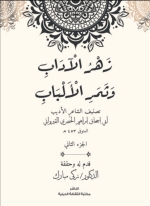 زَهْرُ الْآدَابِ
وَثَمَرُ الْأَلْبَابِ
تصنيف الشاعر الأديب
أبي إسحاق إبراهيم الحصري القيرواني
المتوفى ٤٥٣ هـ
الجزء الثاني
قدم له وحققه
الدكتور/ زكي مبارك